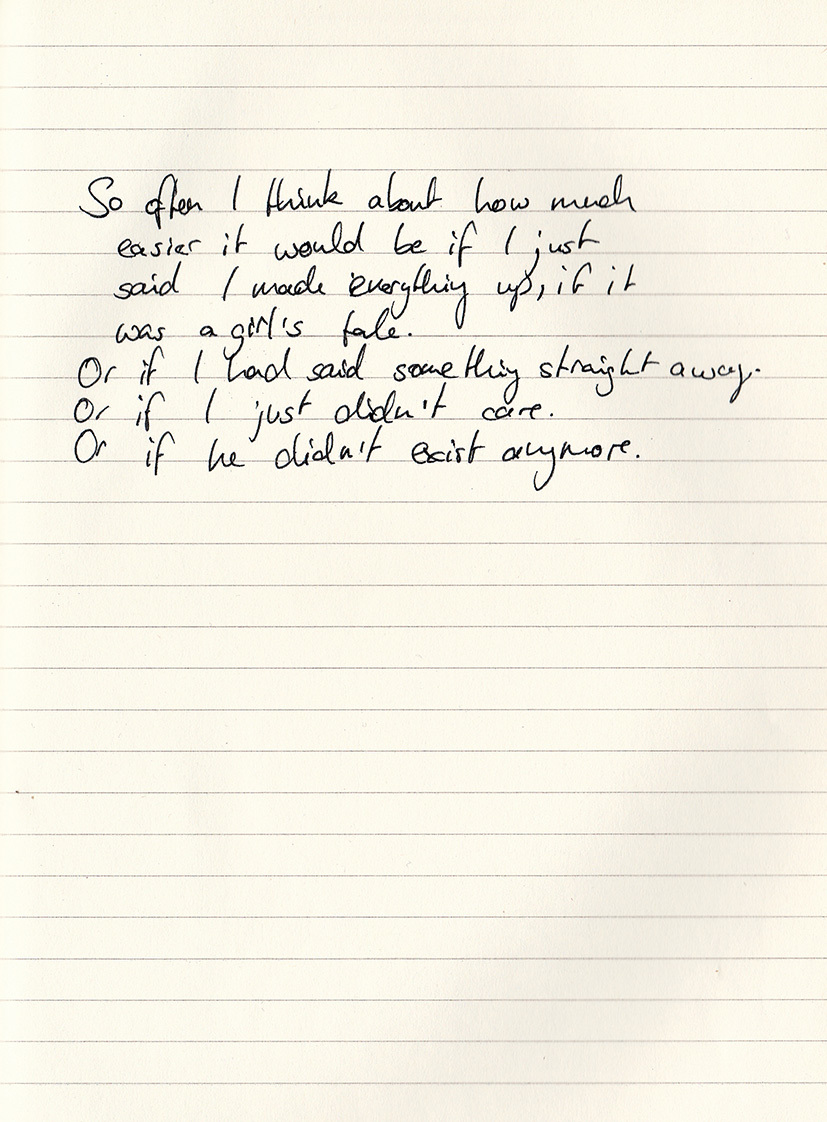 So often I think about how much
easier it would be if I just
said I made everything up, if it
was a girl's tale.
Or if I had said something straight away.
Or if I just didn't care.
Or if he didn't exist anymore.